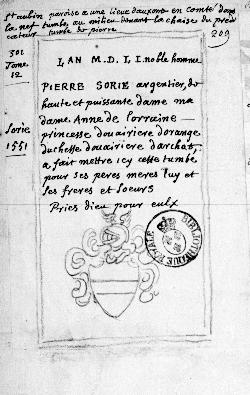 St aubin paroise a une lieue dauxonne en comté dans
la nef tumbe, au milieu devant la chaise du predi
cateur tumbe de pierre
209
301
Tome.
12
Sorie
1551
LAN M.D.L I. noble homme
PIERRE SORIE argentier, de
haute et puissante dame ma
dame Anne de lorraine
princesse douairiere dorange
duchesse douairiere darchot,
a fait mettre icy cette tumbe
pour ses peres meres luy et
ses freres et soeurs
Pries dieu pour eulx
BIBLIOTHEQUE ROYALE